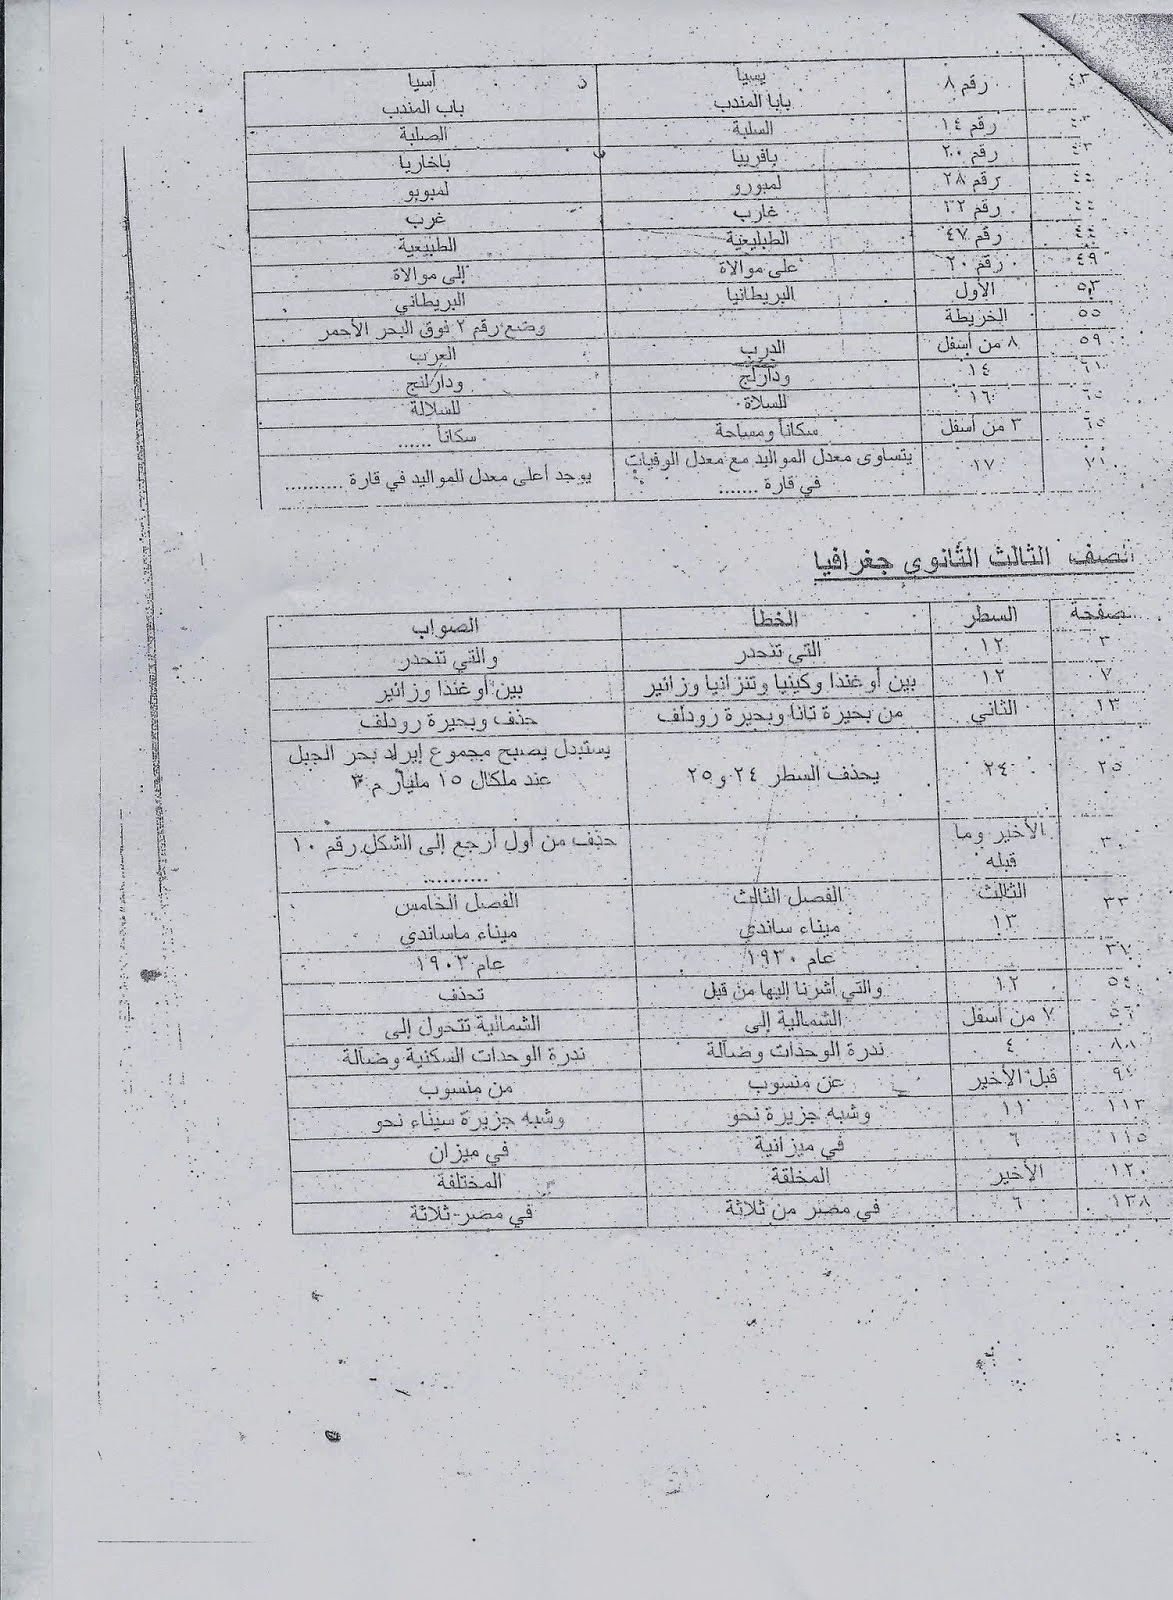 ٤٣ رقم ٨ يسيا آسيا
بابا المندب باب المندب
٤٣ رقم ١٤ السلبة الصلبة
٤٣ رقم ٢٠ بافريبا باخاريا
٤٤ رقم ٢٨ لمبورو لمبوبو
٤٤ رقم ٣٢ غارب غرب
٤٤ رقم ٤٧ الطبليعية الطبيعية
٤٩ رقم ٢٠ على موالاة إلى موالاة
٥٣ الأول البريطانيا البريطاني
٥٥ الخريطة وضع رقم ٢ فوق البحر الأحمر
٥٩ ٨ من أسفل الدرب العرب
٦١ ١٤ ودارلج ودارلنج
٦٥ ١٦ للسلاة للسلالة
٦٥ ٣ من أسفل سكاناً ومساحة سكاناً ......
٧١ ١٧ يتساوى معدل المواليد مع معدل الوفيات
في قارة ....... يوجد أعلى معدل للمواليد في قارة ..........
الصف الثالث الثانوي جغرافيا
صفحة السطر الخطأ الصواب
٣ ١٢ التي تنحدر والتي تنحدر
٧ ١٢ بين أوغندا وكينيا وتنزانيا وزائير بين أوغندا وزائير
١٣ الثاني من بحيرة تانا وبحيرة رودلف حذف وبحيرة رودلف
٢٥ ٢٤ يحذف السطر ٢٤ و٢٥ يستبدل يصبح مجموع إيراد بحر الجبل
عند ملكال ١٥ مليار م٣
٣٠ الأخير وما
قبله حذف من أول أرجع إلى الشكل رقم ١٠
..........
٣٣ الثالث الفصل الثالث الفصل الخامس
١٣ ميناء ساندي ميناء ماساندي
٣٧ عام ١٩٣٠ عام ١٩٠٣
٥٤ ١٢ والتي أشرنا إليها من قبل تحذف
٥٦ ٧ من أسفل الشمالية إلى الشمالية تتحول إلى
٨٨ ٤ ندرة الوحدات وضآلة ندرة الوحدات السكنية وضآلة
٩٧ قبل الأخير عن منسوب من منسوب
١١٣ ١١ وشبه جزيرة نحو وشبه جزيرة سيناء نحو
١١٥ ٦ في ميزانية في ميزان
١٢٠ الأخير المخلقة المختلفة
١٣٨ ٦ في مصر من ثلاثة في مصر ثلاثة